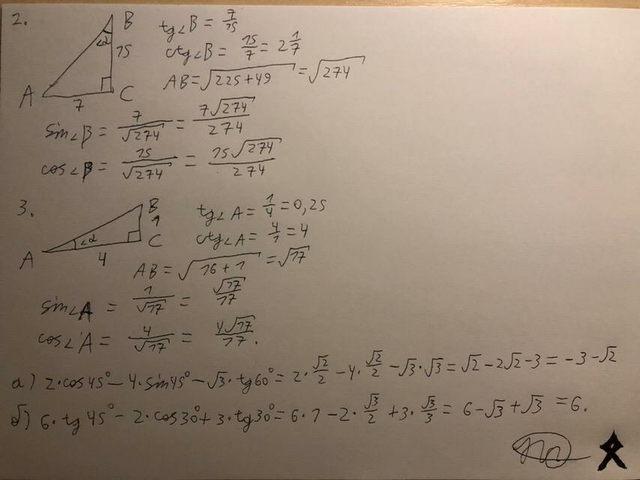 2.
B
∠α
15
A
7
C
tg∠B = 7/15
ctg∠B = 15/7 = 2 1/7
AB = √(225+49) = √274
sin∠B = 7/√274 = 7√274/274
cos∠B = 15/√274 = 15√274/274
3.
B
1
A
∠α
C
4
tg∠A = 1/4 = 0,25
ctg∠A = 4/1 = 4
AB = √(16+1) = √17
sin∠A = 1/√17 = √17/17
cos∠A = 4/√17 = 4√17/17.
а) 2·cos45° − 4·sin45° − √3·tg60° = 2·√2/2 − 4·√2/2 − √3·√3 = √2 − 2√2 − 3 = −3 − √2
б) 6·tg45° − 2·cos30° + 3·tg30° = 6·1 − 2·√3/2 + 3·√3/3 = 6 − √3 + √3 = 6.